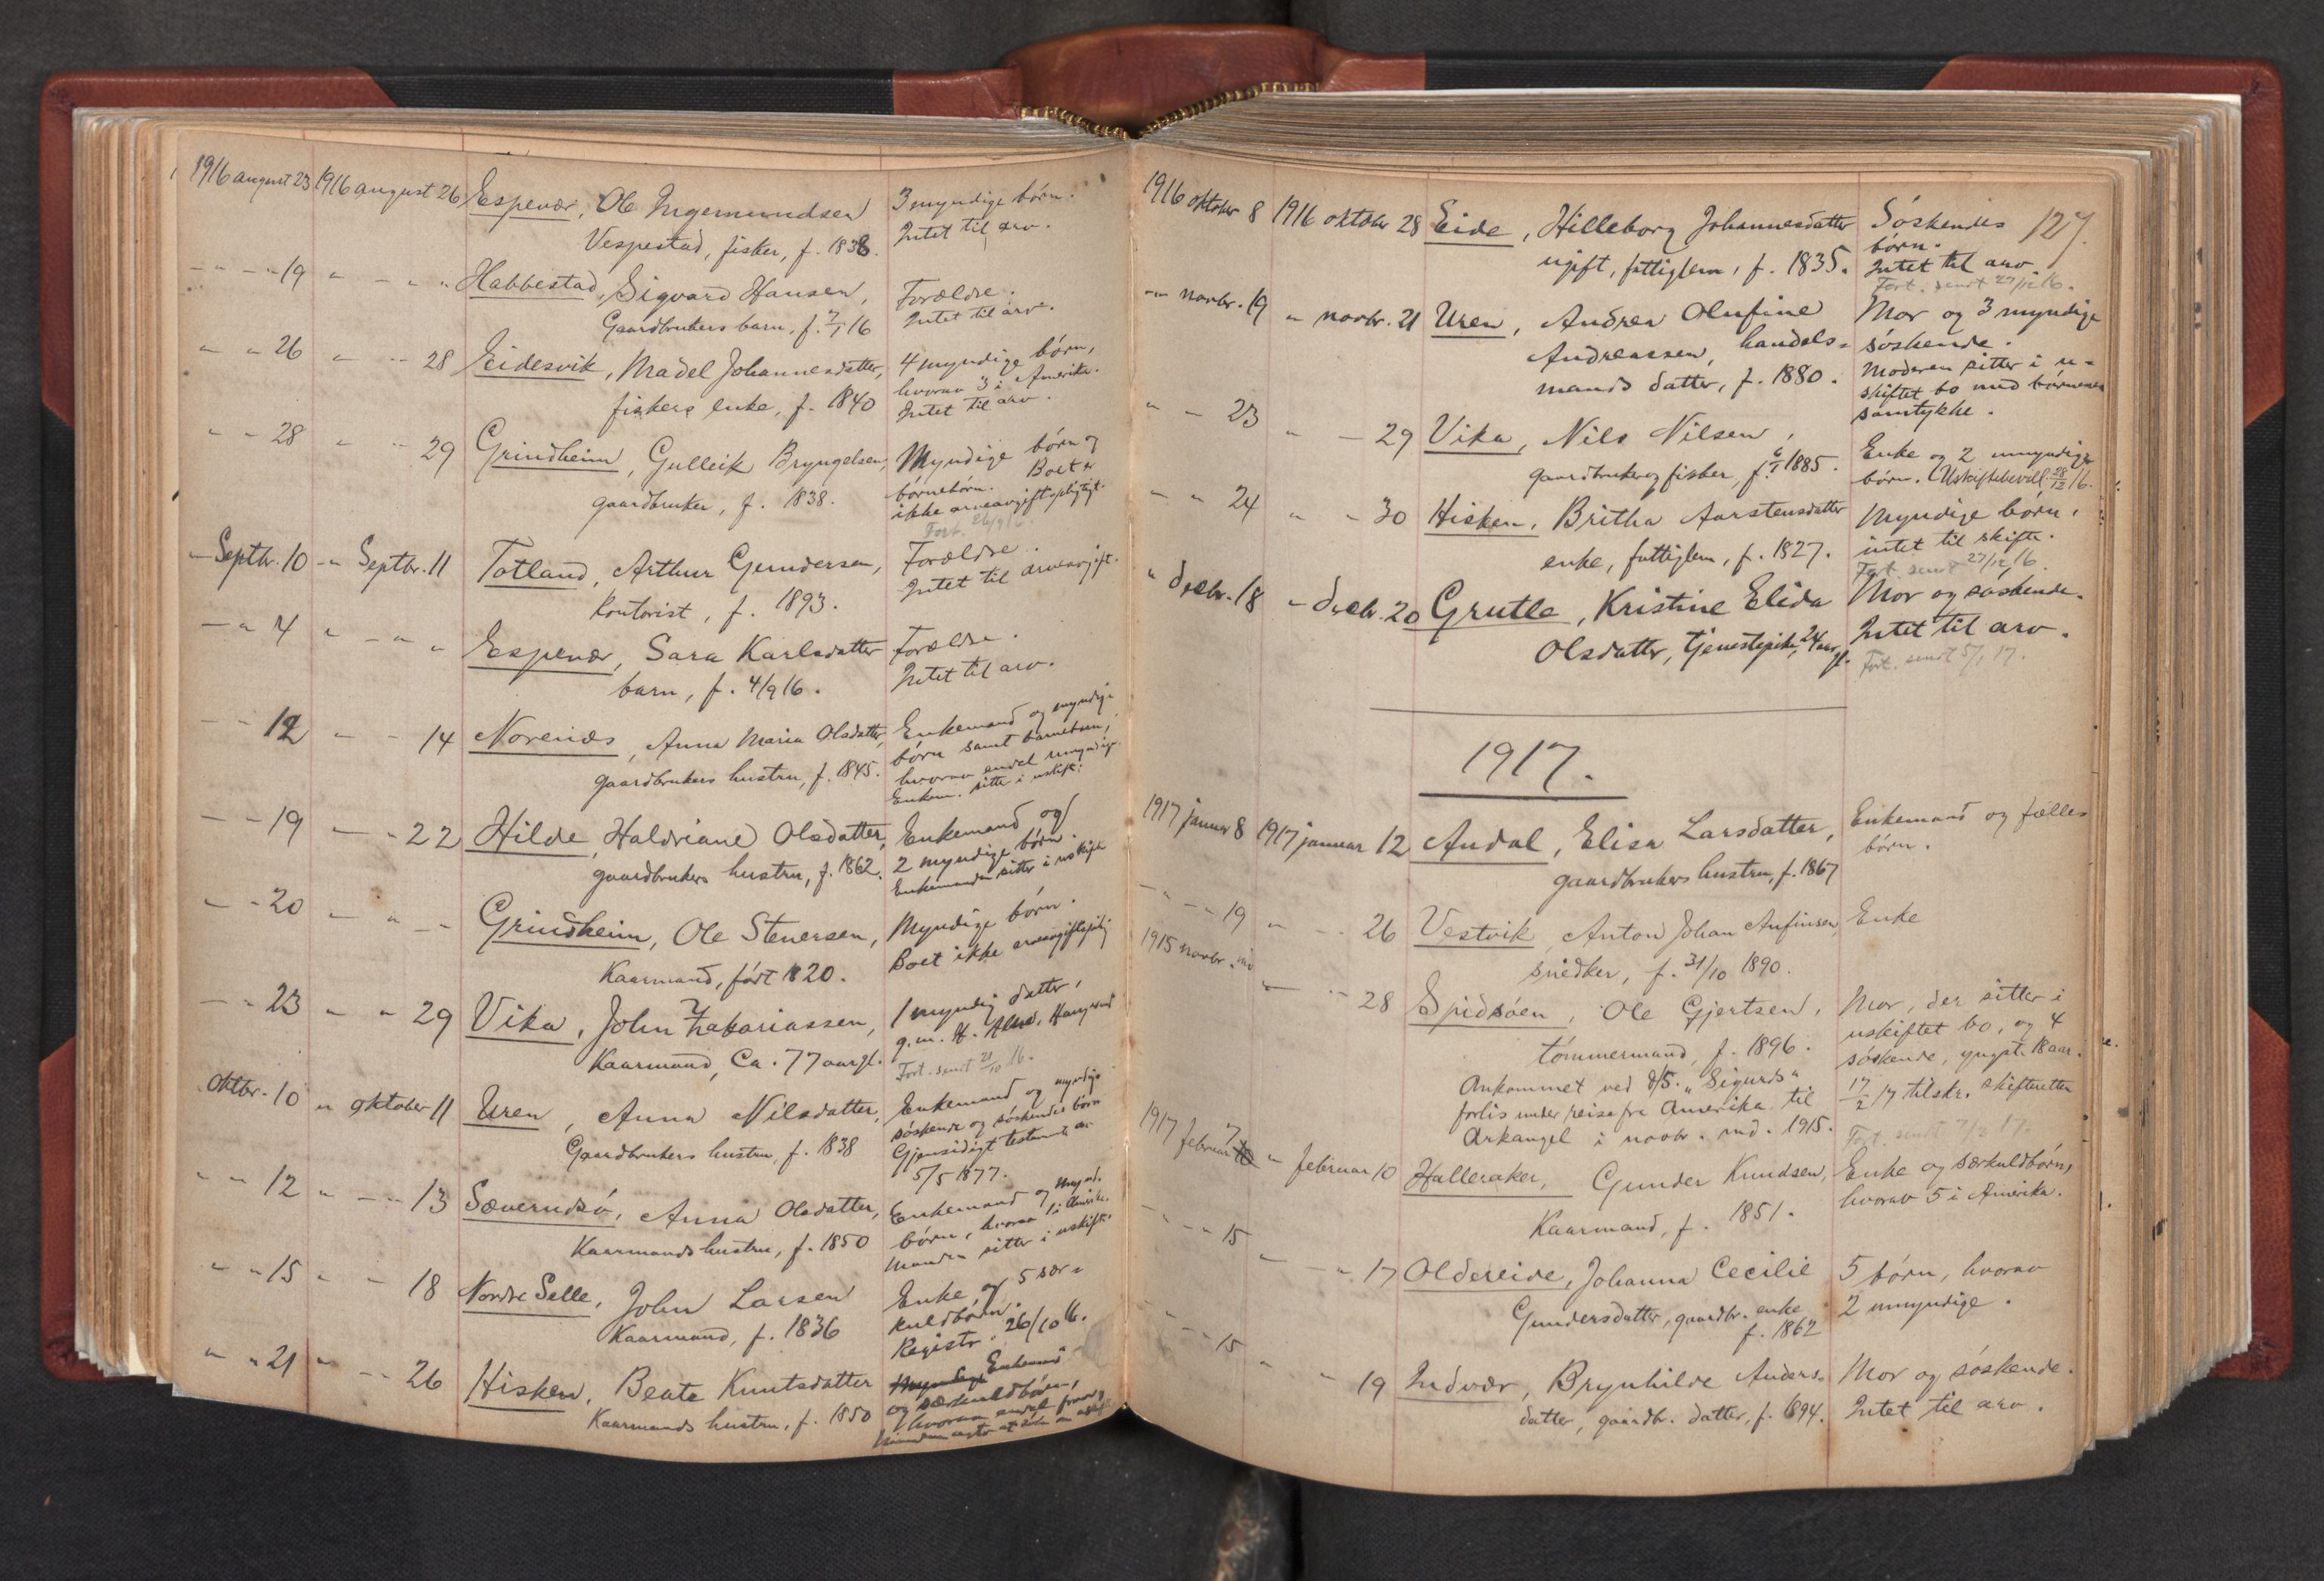 1916 august 23 1916 august 26 Espevær, Ole Ingemundsen 3 myndige børn.
Vespestad, fisker, f. 1838. Intet til arv.
" " 19 " " " Habbestad, Sigvard Hansen, Forældre.
Gaardbrukers barn, f. 7/1 16 Intet til arv.
" " 26 " " 28 Eidesvik, Madel Johannesdatter, 4 myndige børn,
hvorav 3 i Amerika.
fiskers enke, f. 1840 Intet til arv.
" " 28 " " 29 Grindheim, Gulleik Bryngelsen, Myndige børn og
børnebørn. Boet er
gaardbruker, f. 1838. ikke arveavgiftspligtigt.
Fort. 26/9 16.
" Septbr. 10 " Septbr. 11 Totland, Arthur Gundersen, Forældre.
kontorist, f. 1893. Intet til arveavgift.
" " 4 " " " Espevær, Sara Karlsdatter Forældre.
barn, f. 4/9 16. Intet til arv.
" " 12 " " 14 Norenæs, Anna Maria Olsdatter, Enkemand og myndige
børn samt barnebarn,
gaardbrukers hustru, f. 1845. hvorav endel umyndige.
Enkem. sitter i uskift.
" " 19 " " 22 Hilde, Haldriane Olsdatter, Enkemand og
2 myndige børn.
gaardbrukers hustru, f. 1862. Enkemanden sitter i uskifte
" " 20 " " " Grindheim, Ole Stenersen, Myndige børn.
Kaarmand, født 1820. Boet ikke arveavgiftspligtig
" " 23 " " 29 Vika, John Zakariassen, 1 myndig datter,
g.m. H.
Kaarmand, ca. 77 aar gl. Fort. sendt 21/10 16.
Oktbr. 10 " oktober 11 Uren, Anna Nilsdatter, Enkemand og myndige
søskende og søskendes børn
Gaardbrukers hustru, f. 1838 Gjensidigt testamente av
5/5 1877.
" " 12 " " 13 Sæverudsø, Anna Olsdatter, Enkemand og mynd.
børn, hvorav 1 i Amerika.
Kaarmands hustru, f. 1850 Manden sitter i uskifte.
" " 15 " " 18 Nordre Selle, John Larsen Enke, og 5 sær=
kuldbørn.
Kaarmand, f. 1836 Registr. 26/10 16.
" " 21 " " 26 Hisken, Beate Knutsdatter Myndige Enkemand
og særkuldbørn,
Kaarmands hustru, f. 1850 hvorav endel
1916 oktober 8 1916 oktober 28 Eide, Hilleborg Johannesdatter Søskendes 127.
børn.
ugift, fattiglem, f. 1835. Intet til arv.
Fort. sendt 27/12 16.
" novbr. 19 " novbr. 21 Uren, Andrea Olufine Mor og 3 myndige
Andreassen, handels= søskende.
Moderen sitter i u=
mands datter, f. 1880. skiftet bo med børnenes
samtykke.
" " 23 " " 29 Vika, Nils Nilsen,
Enke og 2 umyndige
gaardbruker og fisker, f. 6/1 1885. børn. (Uskiftebevill. 28/12 16.
" " 24 " " 30 Hisken, Britha Aarstensdatter Myndige børn,
enke, fattiglem, f. 1827. intet til skifte.
Fort. sendt 27/12 16.
" decbr. 18 " decbr. 20 Grutle, Kristine Elida Mor og søskende.
Olsdatter, tjenestepike, 24 aar gl. Intet til arv.
Fort. sendt 5/1 17.
1917.
1917 januar 8 1917 januar 12 Andal, Elisa Larsdatter, Enkemand og fælles
gaardbrukers hustru, f. 1867 børn.
" " 19 " " 26 Vestvik, Anton Johan Anfinsen, Enke
snedker, f. 31/10 1890.
1915 novbr. md " " 28 Spidsøen, Ole Gjertsen, Mor, der sitter i
uskiftet bo, og 4
tømmermand, f. 1896. søskende, yngst. 18 aar.
Omkommet ved d/S. "Sigurds" 17/2 17 tilskr. skifteretten
forlis under reise fra Amerika til
Arkangel i novbr. md. 1915. Fort. sendt 7/2 17.
1917 februar 7 " februar 10 Halleraker, Gunder Knudsen, Enke og særkuldbørn,
Kaarmand, f. 1851. hvorav 5 i Amerika.
" " 15 " " 17 Oldereide, Johanna Cecilie 5 børn, hvorav
Gundersdatter, gaardbr. enke 2 umyndige.
f. 1862
" " 15 " " 19 Indvær, Brynhilde Anders= Mor og søskende.
datter, gaardbr. datter, f. 1894. Intet til arv.